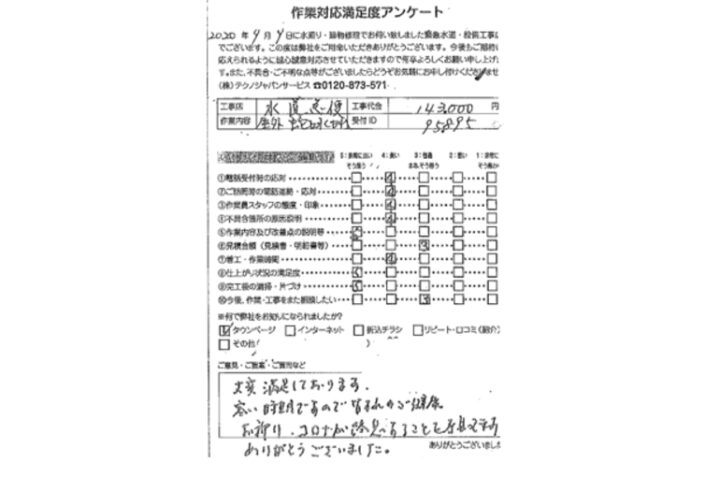 作業対応満足度アンケート
2020 年 9 月 9 日に水廻り・建物修理でお伺い致しました緊急水道・設備工事に
でございます。この度は弊社をご用命いただきありがとうございます。今後もご期待に
応えられるように誠心誠意対応させていただきますので何卒よろしくお願い申し上げ
す。また、不具合・ご不明な点等がございましたらどうぞお気軽にお申し付けください
(株)テクノジャパンサービス ☎0120-873-571
工事店 水道 急便 工事代金 143,000 円
作業内容 屋外 受付ID 95895
5:非常に良い 4:良い 3:普通 2:悪い 1:非常に
そう思う まあそう思う そう
①電話受付時の応対 4
②ご訪問前の電話連絡・応対 4
③作業員スタッフの態度・印象 4
④不具合箇所の原因説明 4
⑤作業内容及び改善点の説明等 5
⑥見積金額(見積書・明細書等) 3
⑦着工・作業時間 4
⑧仕上がり状況の満足度 5
⑨完工後の清掃・片づけ 5
⑩今後、作業・工事をまた相談したい 3
※何で弊社をお知りになられましたか?
タウンページ インターネット 折込チラシ リピート・口コミ(紹介)
その他( )
ご意見・ご提案・ご質問など
大変満足しております。
寒い時期ですので皆さんのご健康
お祈り、コロナが
ありがとうございました。
ありがとうございました